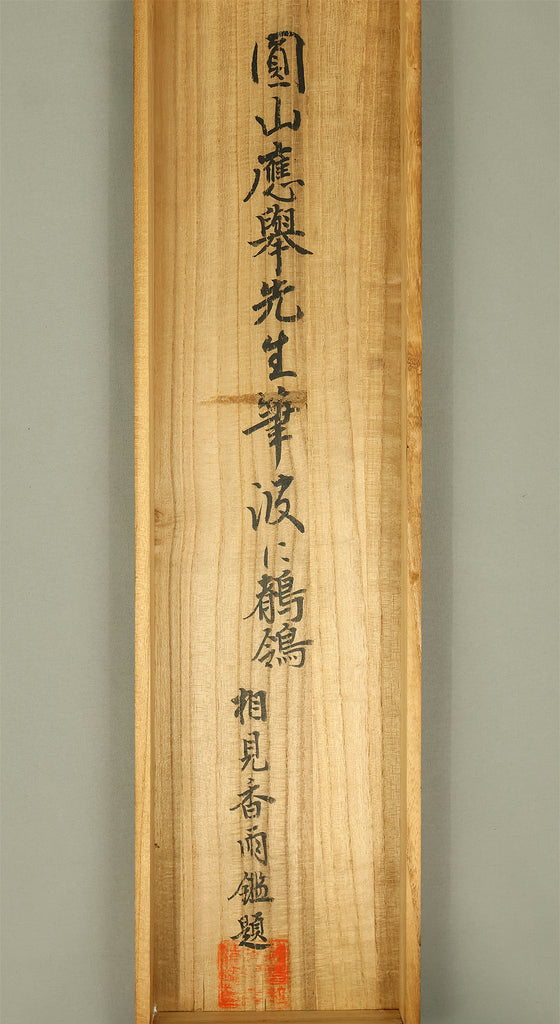 圓山應舉先生筆波に鶺鴒
相見香雨鑑題